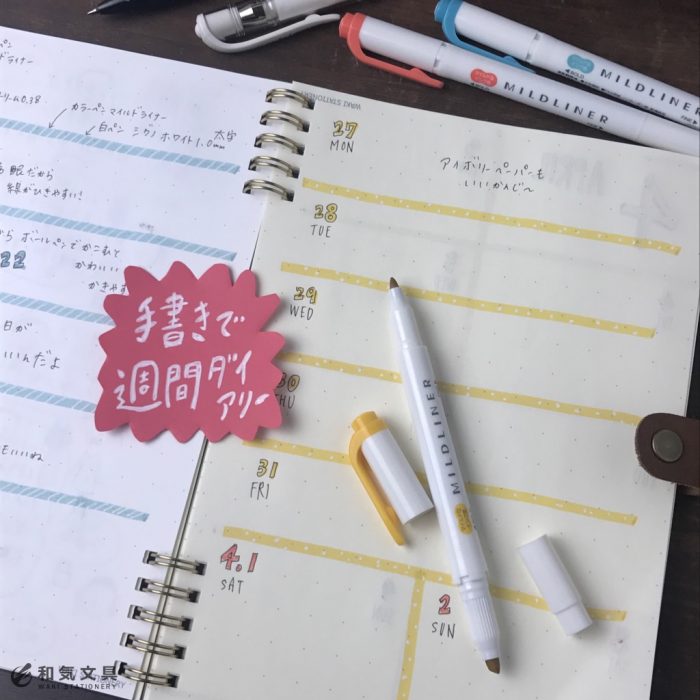 カラーペン マイルドライナー
白ペン シグノ ホワイト 1.0mm 太字
線がひきやすい!
ボールペンでかこむと
かわいい
22
日が
いいんだよ
手書きで
週間ダイ
アリー
WAKI STATIONERY
27
MON
アイボリーペーパーも
いいかんじ〜
28
TUE
29
WED
30
THU
31
FRI
4.1
SAT
2
SUN
MILDLINER
MILDLINER
MILDLINER
BOLD
和気文具
WAKI STATIONERY